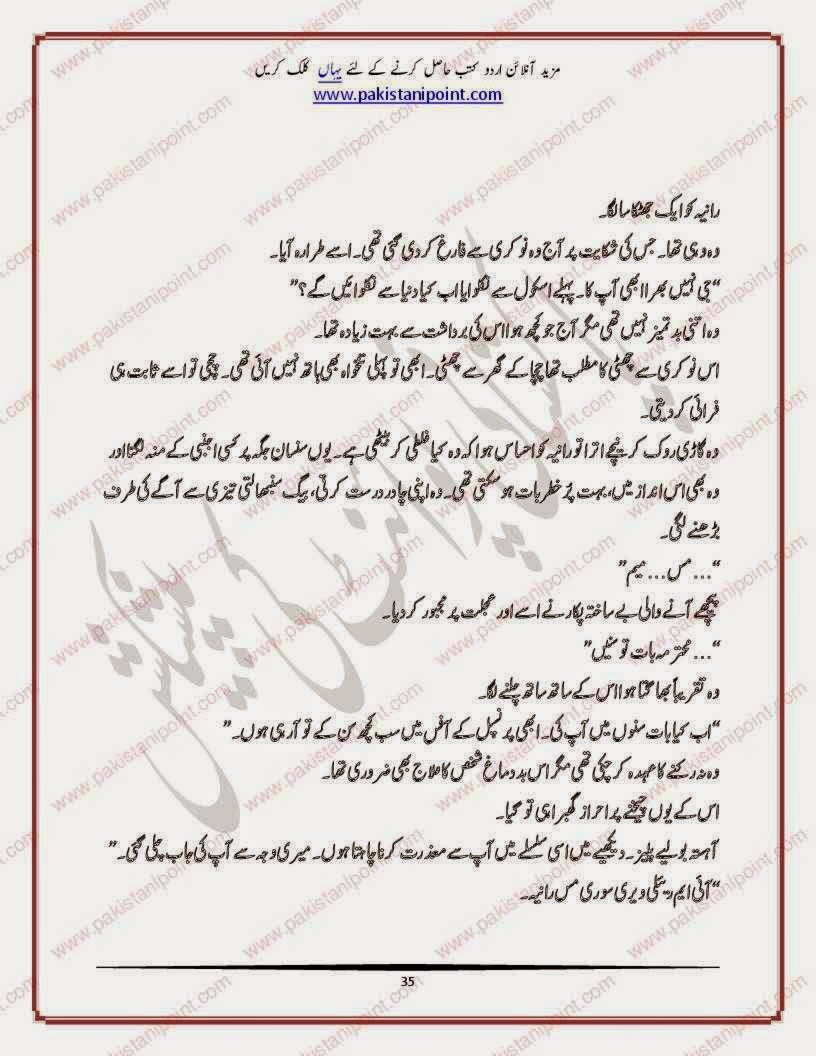 مزید آنلائن اردو کتب حاصل کرنے کے لئے یہاں کلک کریں
www.pakistanipoint.com
رانیہ کو ایک جھٹکا سا لگا۔
وہ وہی تھا۔ جس کی شکایت پر آج وہ نوکری سے فارغ کر دی گئی تھی۔ اسے طرارہ آیا۔
"جی نہیں بھرا ابھی آپ کا۔ پہلے اسکول سے نکلوایا اب کیا دنیا سے نکلوائیں گے؟"
وہ اتنی بد تمیز نہیں تھی مگر آج جو کچھ ہوا اس کی برداشت سے بہت زیادہ تھا۔
اس نوکری سے چھٹی کا مطلب تھا چچا کے گھر سے چھٹی۔ ابھی تو پہلی تنخواہ بھی ہاتھ نہیں آئی تھی۔ چچی تو اسے ثابت ہی
فرائی کر دیتی۔
وہ گاڑی روک کر نیچے اترا تو رانیہ کو احساس ہوا کہ وہ کیا غلطی کر بیٹھی ہے۔ یوں سنسان جگہ پر کسی اجنبی کے منہ لگنا اور
وہ بھی اس انداز میں، بہت پُر خطر بات ہو سکتی تھی۔ وہ اپنی چادر درست کرتی، بیگ سنبھالتی تیزی سے آگے کی طرف
بڑھنے لگی۔
"... مس... میم"
پیچھے آنے والی بے ساختہ پکار نے اسے اور عجلت پر مجبور کر دیا۔
"... محترمہ بات تو سنیں"
وہ تقریباً بھاگتا ہوا اس کے ساتھ ساتھ چلنے لگا۔
"اب کیا بات سنوں میں آپ کی۔ ابھی پرنسپل کے آفس میں سب کچھ سن کے تو آرہی ہوں۔"
وہ نہ رکنے کا عہدہ کر چکی تھی مگر اس بد دماغ شخص کا علاج بھی ضروری تھا۔
اس کے یوں چیخنے پر احراز گھبرا ہی تو گیا۔
آہستہ بولیے پلیز۔ دیکھیے میں اسی سلسلے میں آپ سے معذرت کرنا چاہتا ہوں۔ میری وجہ سے آپ کی جاب چلی گئی۔"
"آئی ایم رئیلی ویری سوری مس رانیہ۔
35